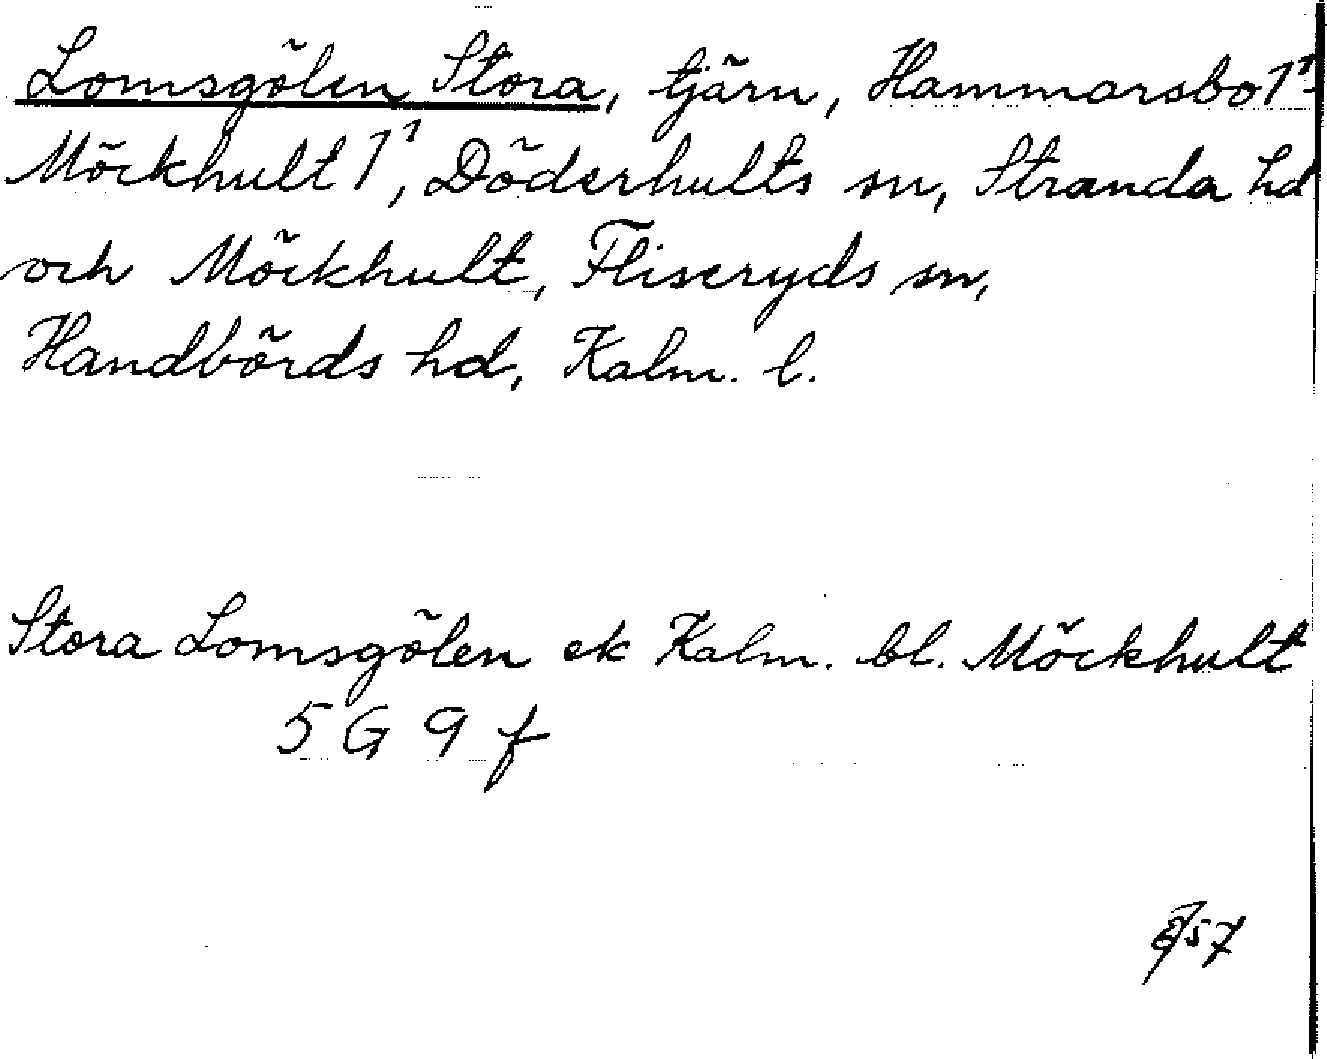 Lomsgölen Stora, tjärn, Hammarsbo 1¹-
Möckhult 1¹, Döderhults sn, Stranda hd
och Möckhult, Fliseryds sn,
Handbörds hd, Kalm. l.
Stora Lomsgölen ek Kalm. bl. Möckhult
5 G 9 f
57